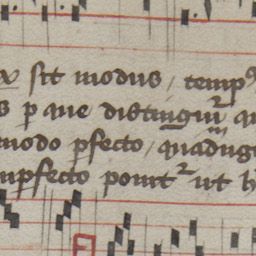 sit modus / tempꝰ
s p que distinguit᷑ qu
modo pfecto / quadug
npfecto ponit᷑ ut h